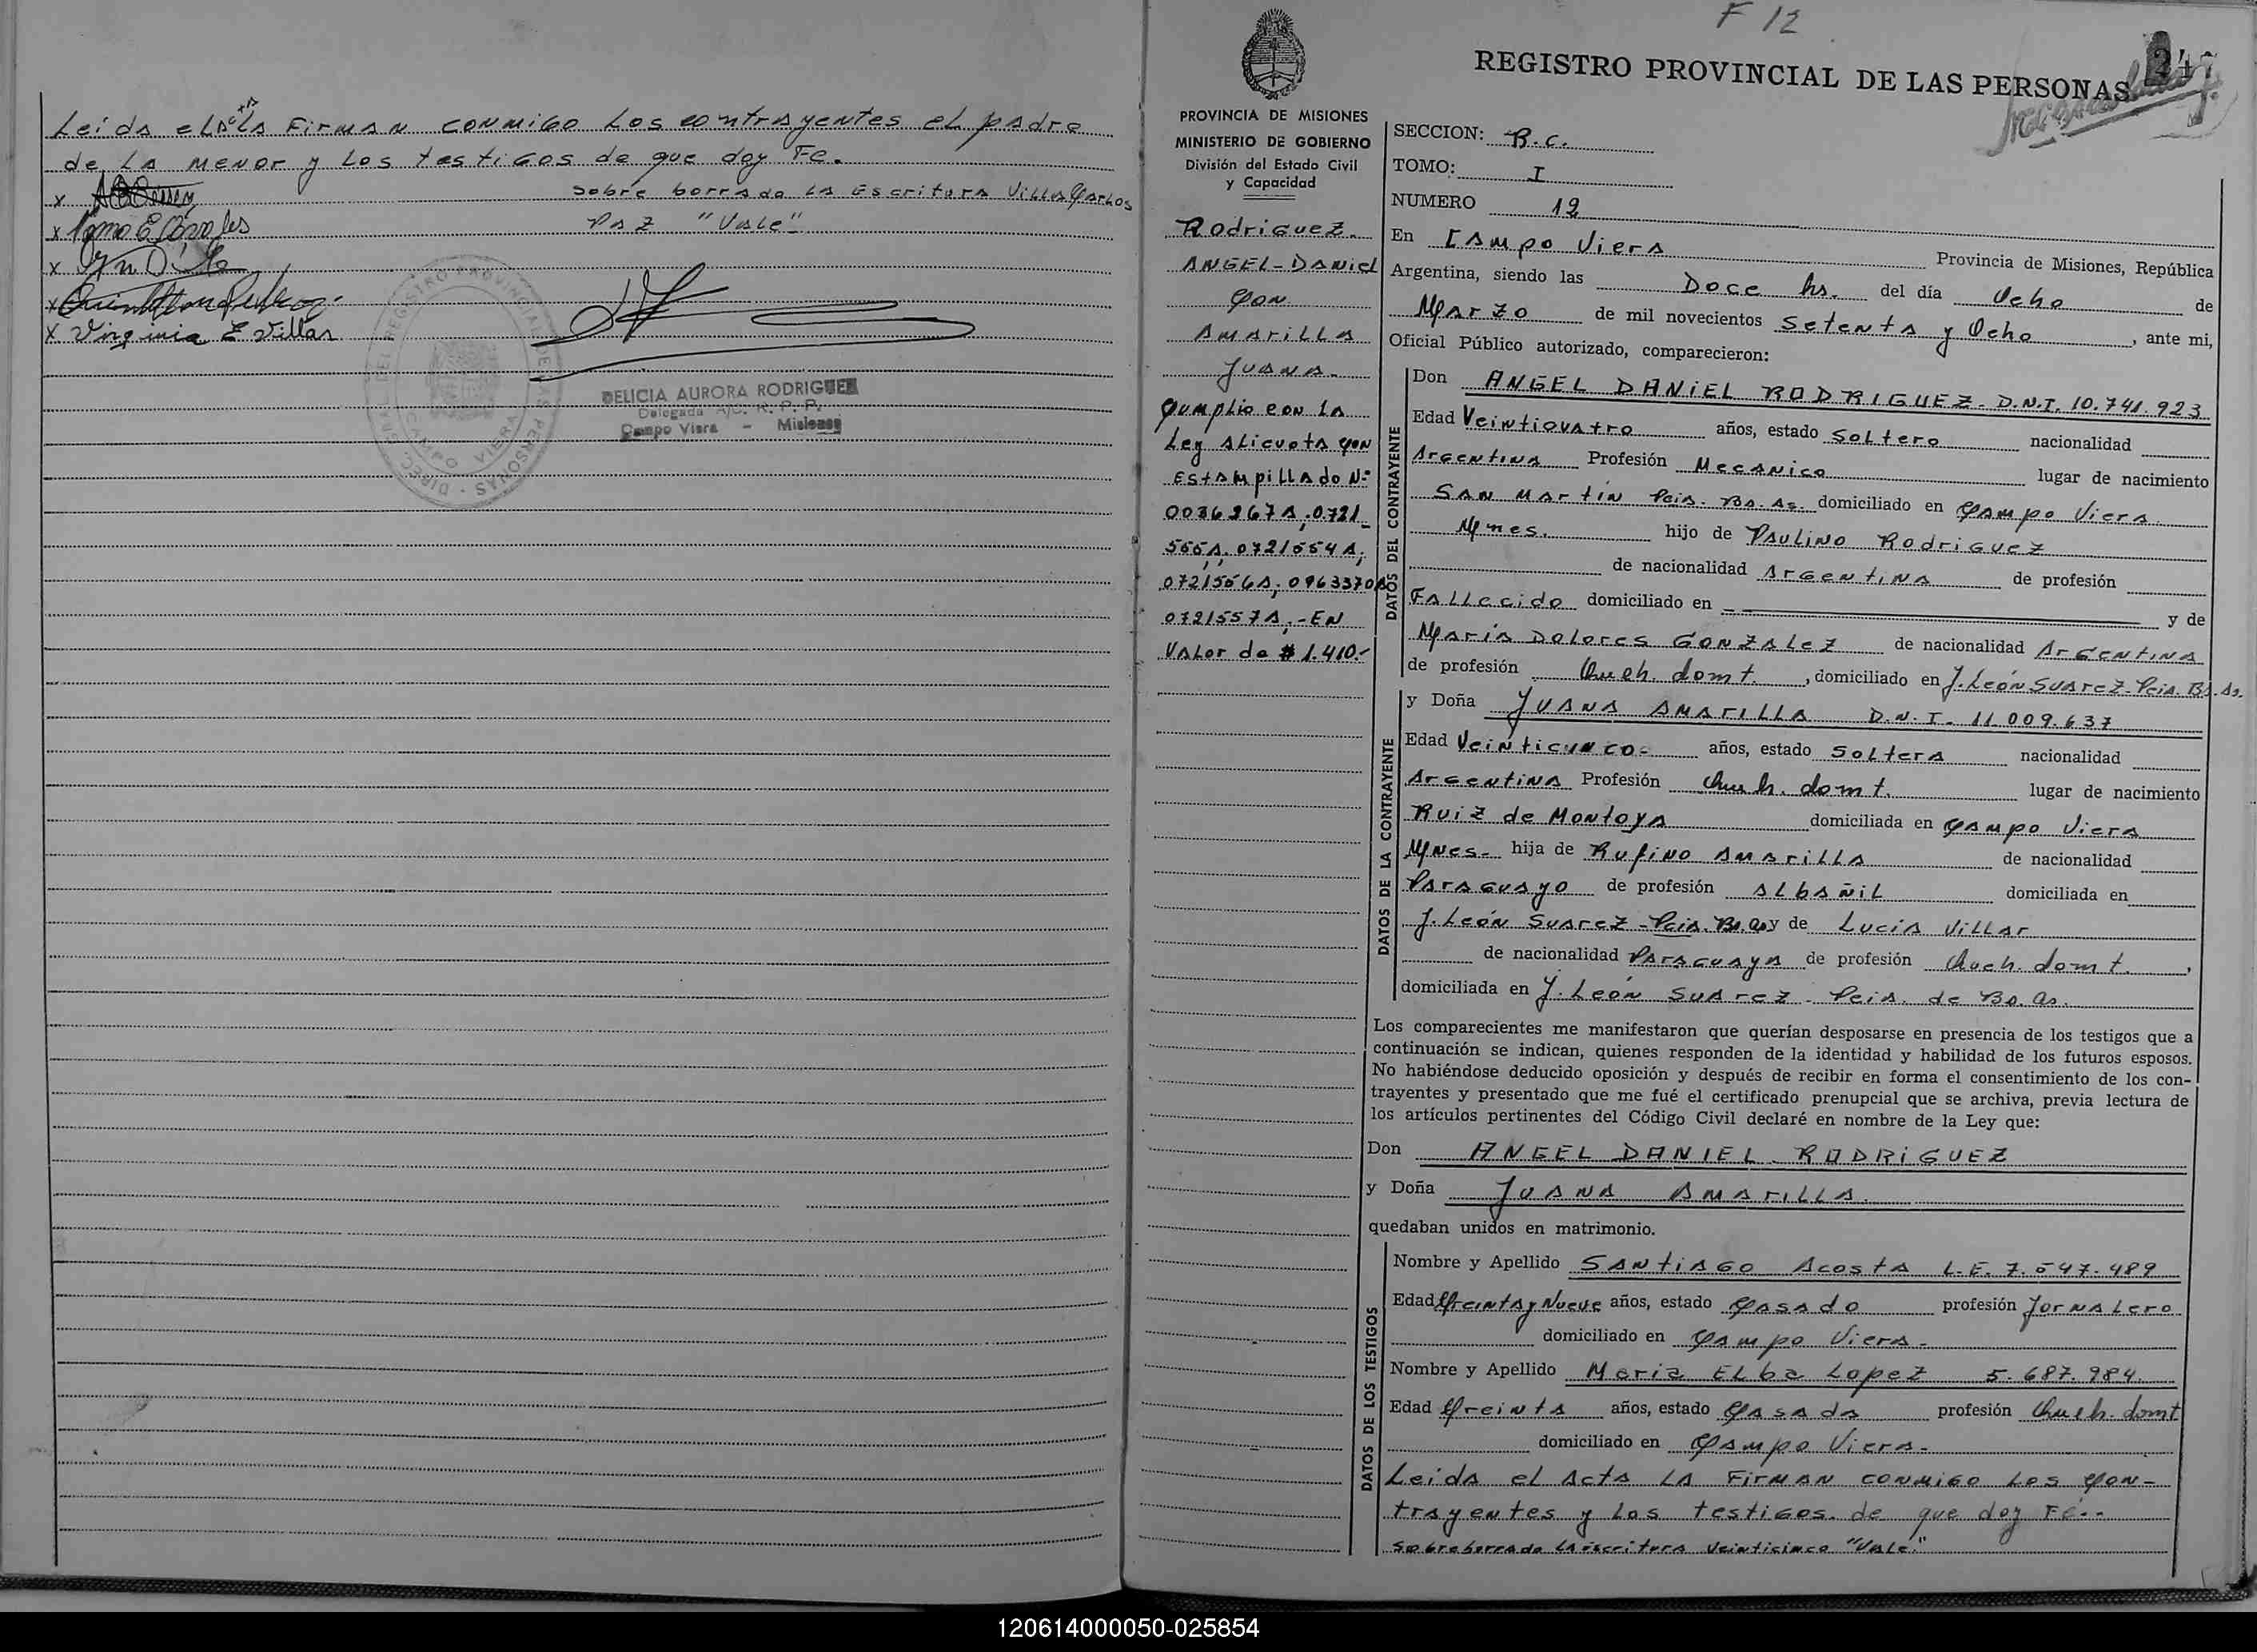 Leida el acta la firman conmigo los contrayentes el padre
de la menor y los testigos de que doy Fe.
sobre borrado la escritura Villa Carlos
Paz "Vale"
x
x
x
x
x Virginia E Villar
DELICIA AURORA RODRIGUEZ
Delegada R. P. P.
Campo Viera - Misiones
F 12
REGISTRO PROVINCIAL DE LAS PERSONAS
247
PROVINCIA DE MISIONES
MINISTERIO DE GOBIERNO
División del Estado Civil
y Capacidad
Rodriguez.
ANGEL-DANIEL
Con
AMARILLA
JUANA.
Cumplio con la
Ley alicuota con
Estampillado Nº
0721554A;
0721557A,-EN
Valor de $ 1.410.-
SECCION: R.C.
TOMO: I
NUMERO 12
En Campo Viera Provincia de Misiones, República
Argentina, siendo las Doce hs. del día Ocho de
Marzo de mil novecientos setenta y Ocho, ante mi,
Oficial Público autorizado, comparecieron:
DATOS DEL CONTRAYENTE
Don ANGEL DANIEL RODRIGUEZ- D.N.I. 10.741.923
Edad Veinticuatro años, estado Soltero nacionalidad
Argentina Profesión Mecanico lugar de nacimiento
San Martin Pcia. Bs. As. domiciliado en Campo Viera
Mnes. hijo de Paulino Rodriguez
de nacionalidad Argentina de profesión
Fallecido domiciliado en y de
Maria Dolores Gonzalez de nacionalidad Argentina
de profesión Queh. domt., domiciliado en J. León Suarez-Pcia. Bs. As.
DATOS DE LA CONTRAYENTE
y Doña JUANA AMARILLA D.N.I- 11.009.637
Edad Veinticinco- años, estado Soltera nacionalidad
Argentina Profesión Queh. domt. lugar de nacimiento
Ruiz de Montoya domiciliada en Campo Viera
Mnes- hija de Rufino Amarilla de nacionalidad
Paraguayo de profesión Albañil domiciliada en
J. León Suarez-Pcia. Bs. As y de Lucia Villar
de nacionalidad Paraguaya de profesión Queh. domt.,
domiciliada en J. León Suarez- Pcia. de Bs. As.
Los comparecientes me manifestaron que querían desposarse en presencia de los testigos que a
continuación se indican, quienes responden de la identidad y habilidad de los futuros esposos.
No habiéndose deducido oposición y después de recibir en forma el consentimiento de los con-
trayentes y presentado que me fué el certificado prenupcial que se archiva, previa lectura de
los artículos pertinentes del Código Civil declaré en nombre de la Ley que:
Don ANGEL DANIEL RODRIGUEZ
y Doña JUANA AMARILLA.
quedaban unidos en matrimonio.
DATOS DE LOS TESTIGOS
Nombre y Apellido Santiago Acosta L.E. 7.547.489
Edad Treinta y Nueve años, estado Casado profesión Jornalero
domiciliado en Campo Viera-
Nombre y Apellido Maria Elba Lopez 5.687.984
Edad Treinta años, estado Casada profesión Queh. domt
domiciliado en Campo Viera-
Leida el Acta la firman conmigo los con-
trayentes y los testigos. de que doy Fé..
sobreborrado la escritura veinticinco "Vale"
120614000050-025854